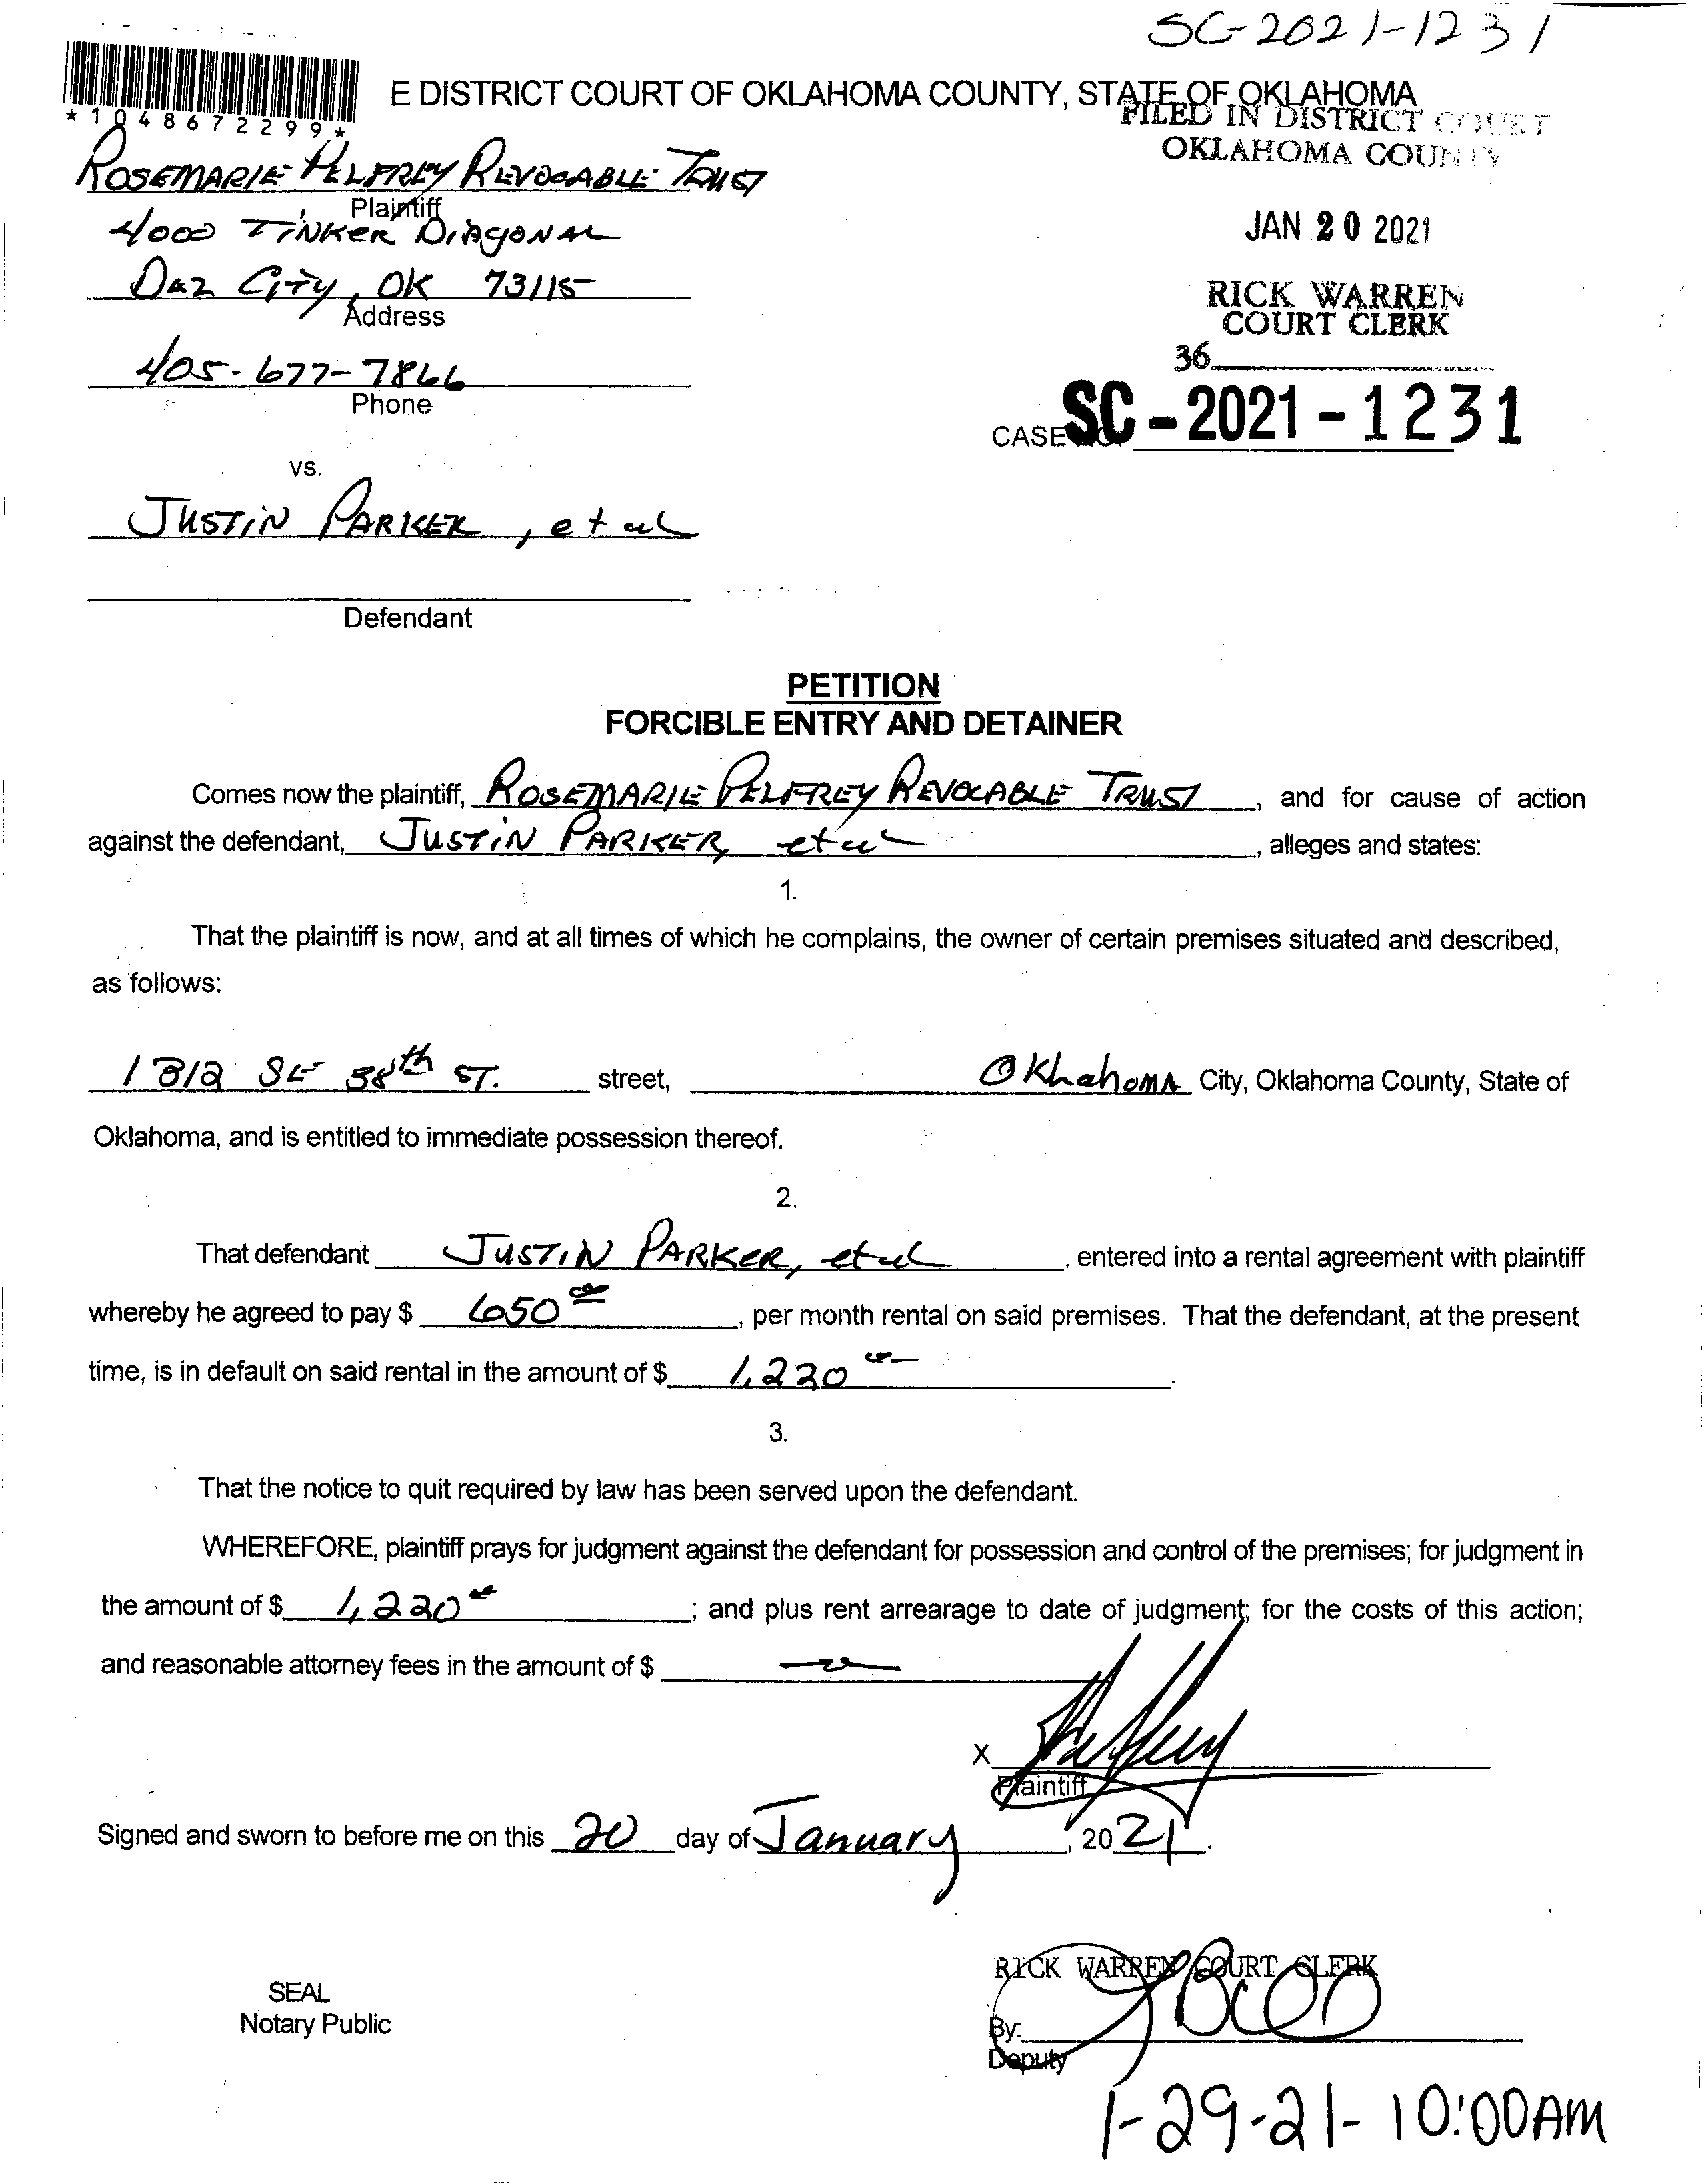 SC-2021-1231
E DISTRICT COURT OF OKLAHOMA COUNTY, STATE OF OKLAHOMA
*1048672299*
FILED IN DISTRICT COURT
OKLAHOMA COUNTY
ROSEMARIE PELFREY REVOCABLE TRUST
Plaintiff
4000 TINKER DIAGONAL
JAN 20 2021
DEL CITY, OK 73115
Address
RICK WARREN
COURT CLERK
405-677-7866
Phone
36
CASE NO. SC-2021-1231
vs.
JUSTIN PARKER, et al
Defendant
PETITION
FORCIBLE ENTRY AND DETAINER
Comes now the plaintiff, ROSEMARIE PELFREY REVOCABLE TRUST, and for cause of action
against the defendant, JUSTIN PARKER, et al, alleges and states:
1.
That the plaintiff is now, and at all times of which he complains, the owner of certain premises situated and described,
as follows:
1312 SE 38th ST. street, Oklahoma City, Oklahoma County, State of
Oklahoma, and is entitled to immediate possession thereof.
2.
That defendant JUSTIN PARKER, et al, entered into a rental agreement with plaintiff
whereby he agreed to pay $ 650 00, per month rental on said premises. That the defendant, at the present
time, is in default on said rental in the amount of $ 1,220 00.
3.
That the notice to quit required by law has been served upon the defendant.
WHEREFORE, plaintiff prays for judgment against the defendant for possession and control of the premises; for judgment in
the amount of $ 1,220 00; and plus rent arrearage to date of judgment; for the costs of this action;
and reasonable attorney fees in the amount of $
X
Plaintiff
Signed and sworn to before me on this 20 day of January, 2021.
RICK WARREN COURT CLERK
SEAL
Notary Public
By:
Deputy
1-29-21- 10:00AM